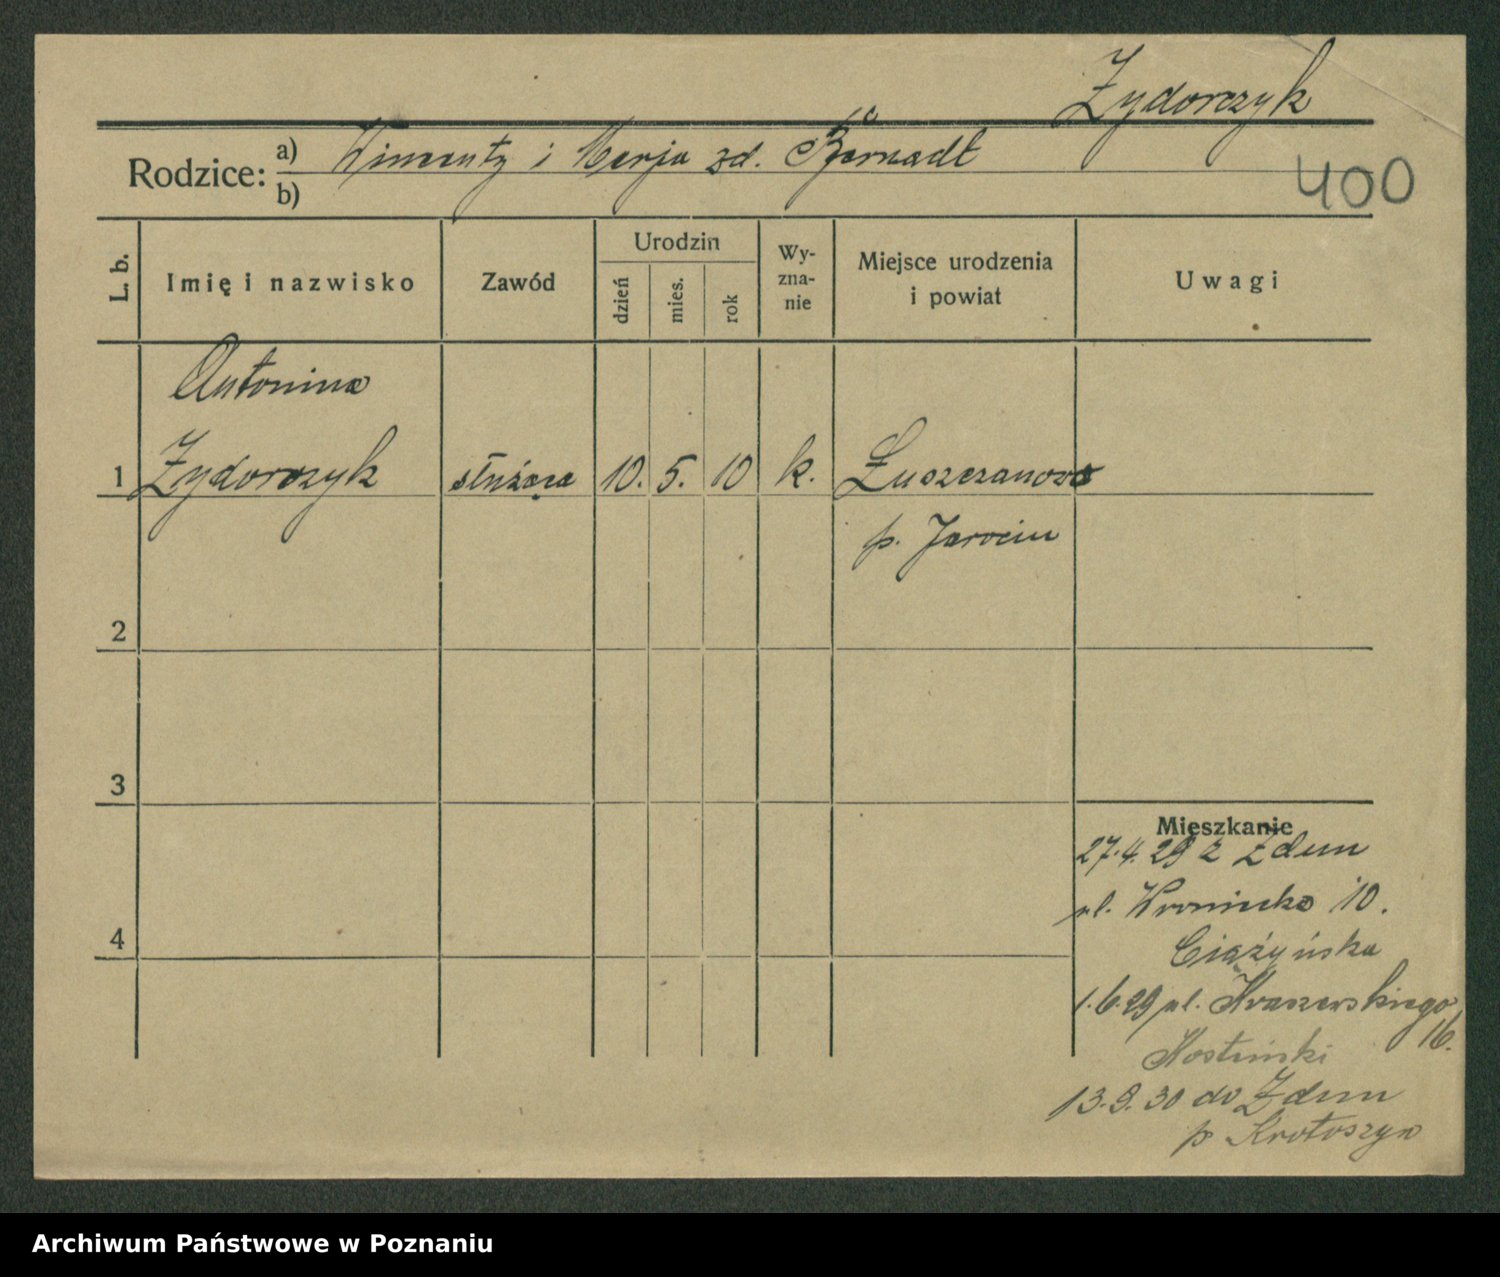 Zydorczyk
Rodzice: a) Wincenty i Marja zd. Bernadt
b)
400
L. b.
Imię i nazwisko
Zawód
Urodzin
dzień
mies.
rok
Wy-
zna-
nie
Miejsce urodzenia
i powiat
Uwagi
Antonina
1 Zydorczyk służąca 10. 5. 10 k. Łuszczanowo
p. Jarocin
2
3
Mieszkanie
27.4.29 z Zdun
ul. Wroniecka 10.
4
Ciążyńska
1.6.29 ul. Kraszewskiego
16.
Kostuński
13.9.30 do Zdun
p Krotoszyn
Archiwum Państwowe w Poznaniu